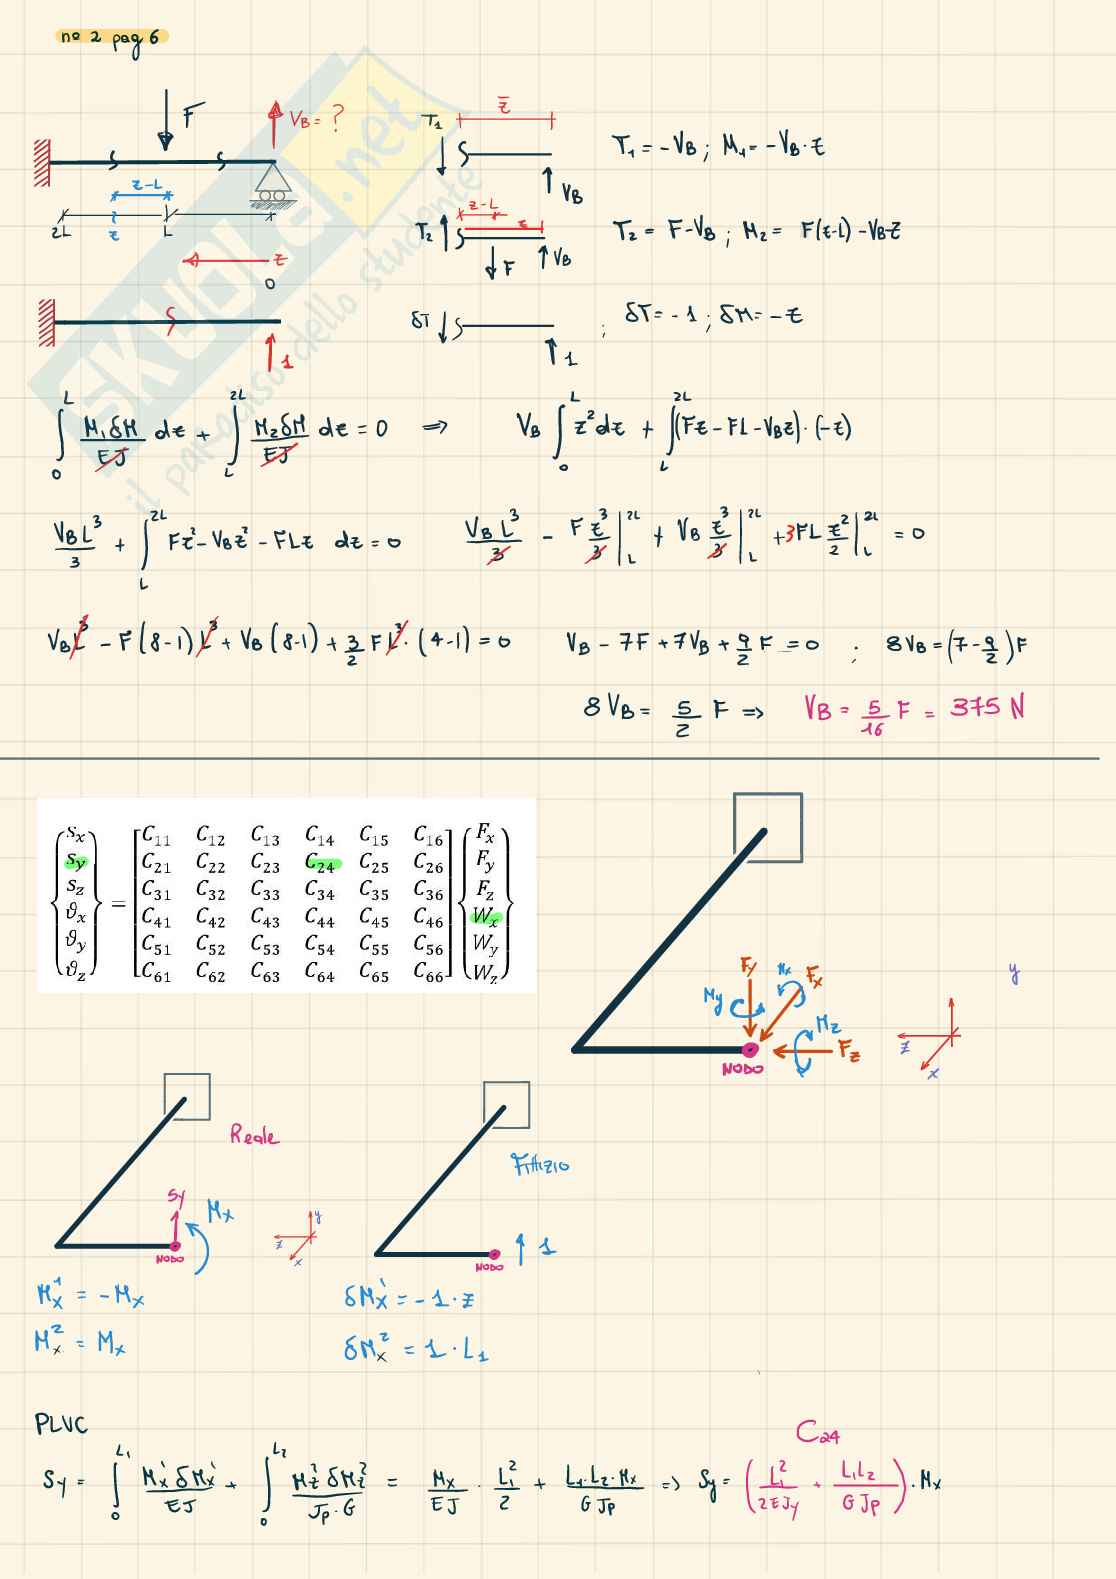 n° 2 pag 6
F
V_B = ?
z̄
T_1
V_B
T_1 = -V_B ; M_1 = -V_B · z
z-L
2L z L
z
0
z-L
z
T_2
F
V_B
T_2 = F - V_B ; M_2 = F(z-L) - V_B z
1
δT
1
; δT = -1 ; δM = -z
∫_0^L M_1 δM / EJ dz + ∫_L^2L M_2 δM / EJ dz = 0 ⇒ V_B ∫_0^L z² dz + ∫_L^2L (Fz - FL - V_B z) · (-z)
V_B L³ / 3 + ∫_L^2L Fz² - V_B z² - FLz dz = 0
V_B L³ / 3 - F z³/3 |_L^2L + V_B z³/3 |_L^2L + 3FL z²/2 |_L^2L = 0
V_B L³ - F (8-1) L³ + V_B (8-1) + 3/2 F L³ · (4-1) = 0
V_B - 7F + 7V_B + 9/2 F = 0 ; 8V_B = (7 - 9/2) F
8V_B = 5/2 F ⇒ V_B = 5/16 F = 375 N
s_x C_11 C_12 C_13 C_14 C_15 C_16 F_x
s_y C_21 C_22 C_23 C_24 C_25 C_26 F_y
s_z C_31 C_32 C_33 C_34 C_35 C_36 F_z
ϑ_x = C_41 C_42 C_43 C_44 C_45 C_46 W_x
ϑ_y C_51 C_52 C_53 C_54 C_55 C_56 W_y
ϑ_z C_61 C_62 C_63 C_64 C_65 C_66 W_z
F_y
M_x
F_x
M_y
M_z
F_z
NODO
y
z
x
Reale
S_y
M_x
NODO
y
z
x
Fittizio
1
NODO
M_x^1 = -M_x
M_x^2 = M_x
δM_x^1 = -1 · z
δM_x^2 = 1 · L_1
PLVC
C_24
S_y = ∫_0^L_1 M_x^1 δM_x^1 / EJ + ∫_0^L_2 M_z^2 δM_z^2 / J_p · G = M_x / EJ · L_1² / 2 + L_1 · L_2 · M_x / G J_p ⇒ S_y = (L_1² / 2EJ_y + L_1 L_2 / G J_p) · M_x
SKUOLA.net
il paradiso dello studente